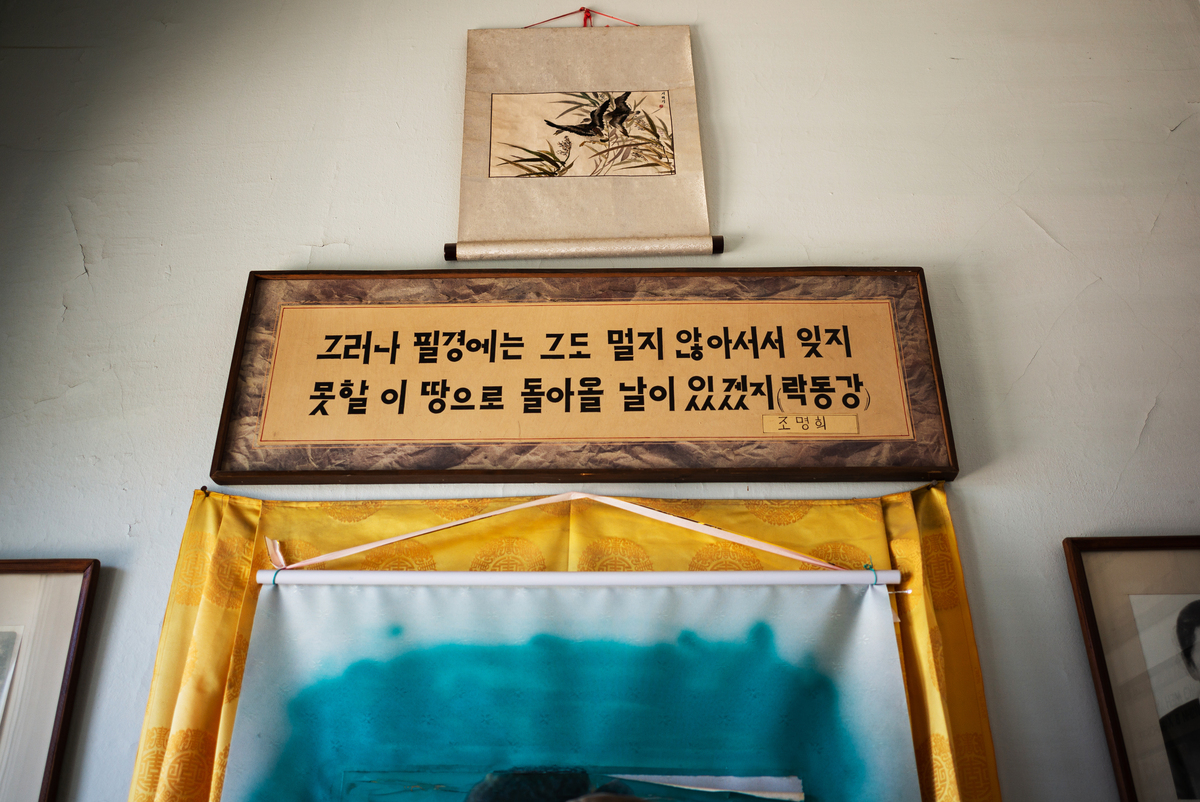 그러나 필경에는 그도 멀지 않아서서 잊지
못할 이 땅으로 돌아올 날이 있겠지(락동강)
조명희